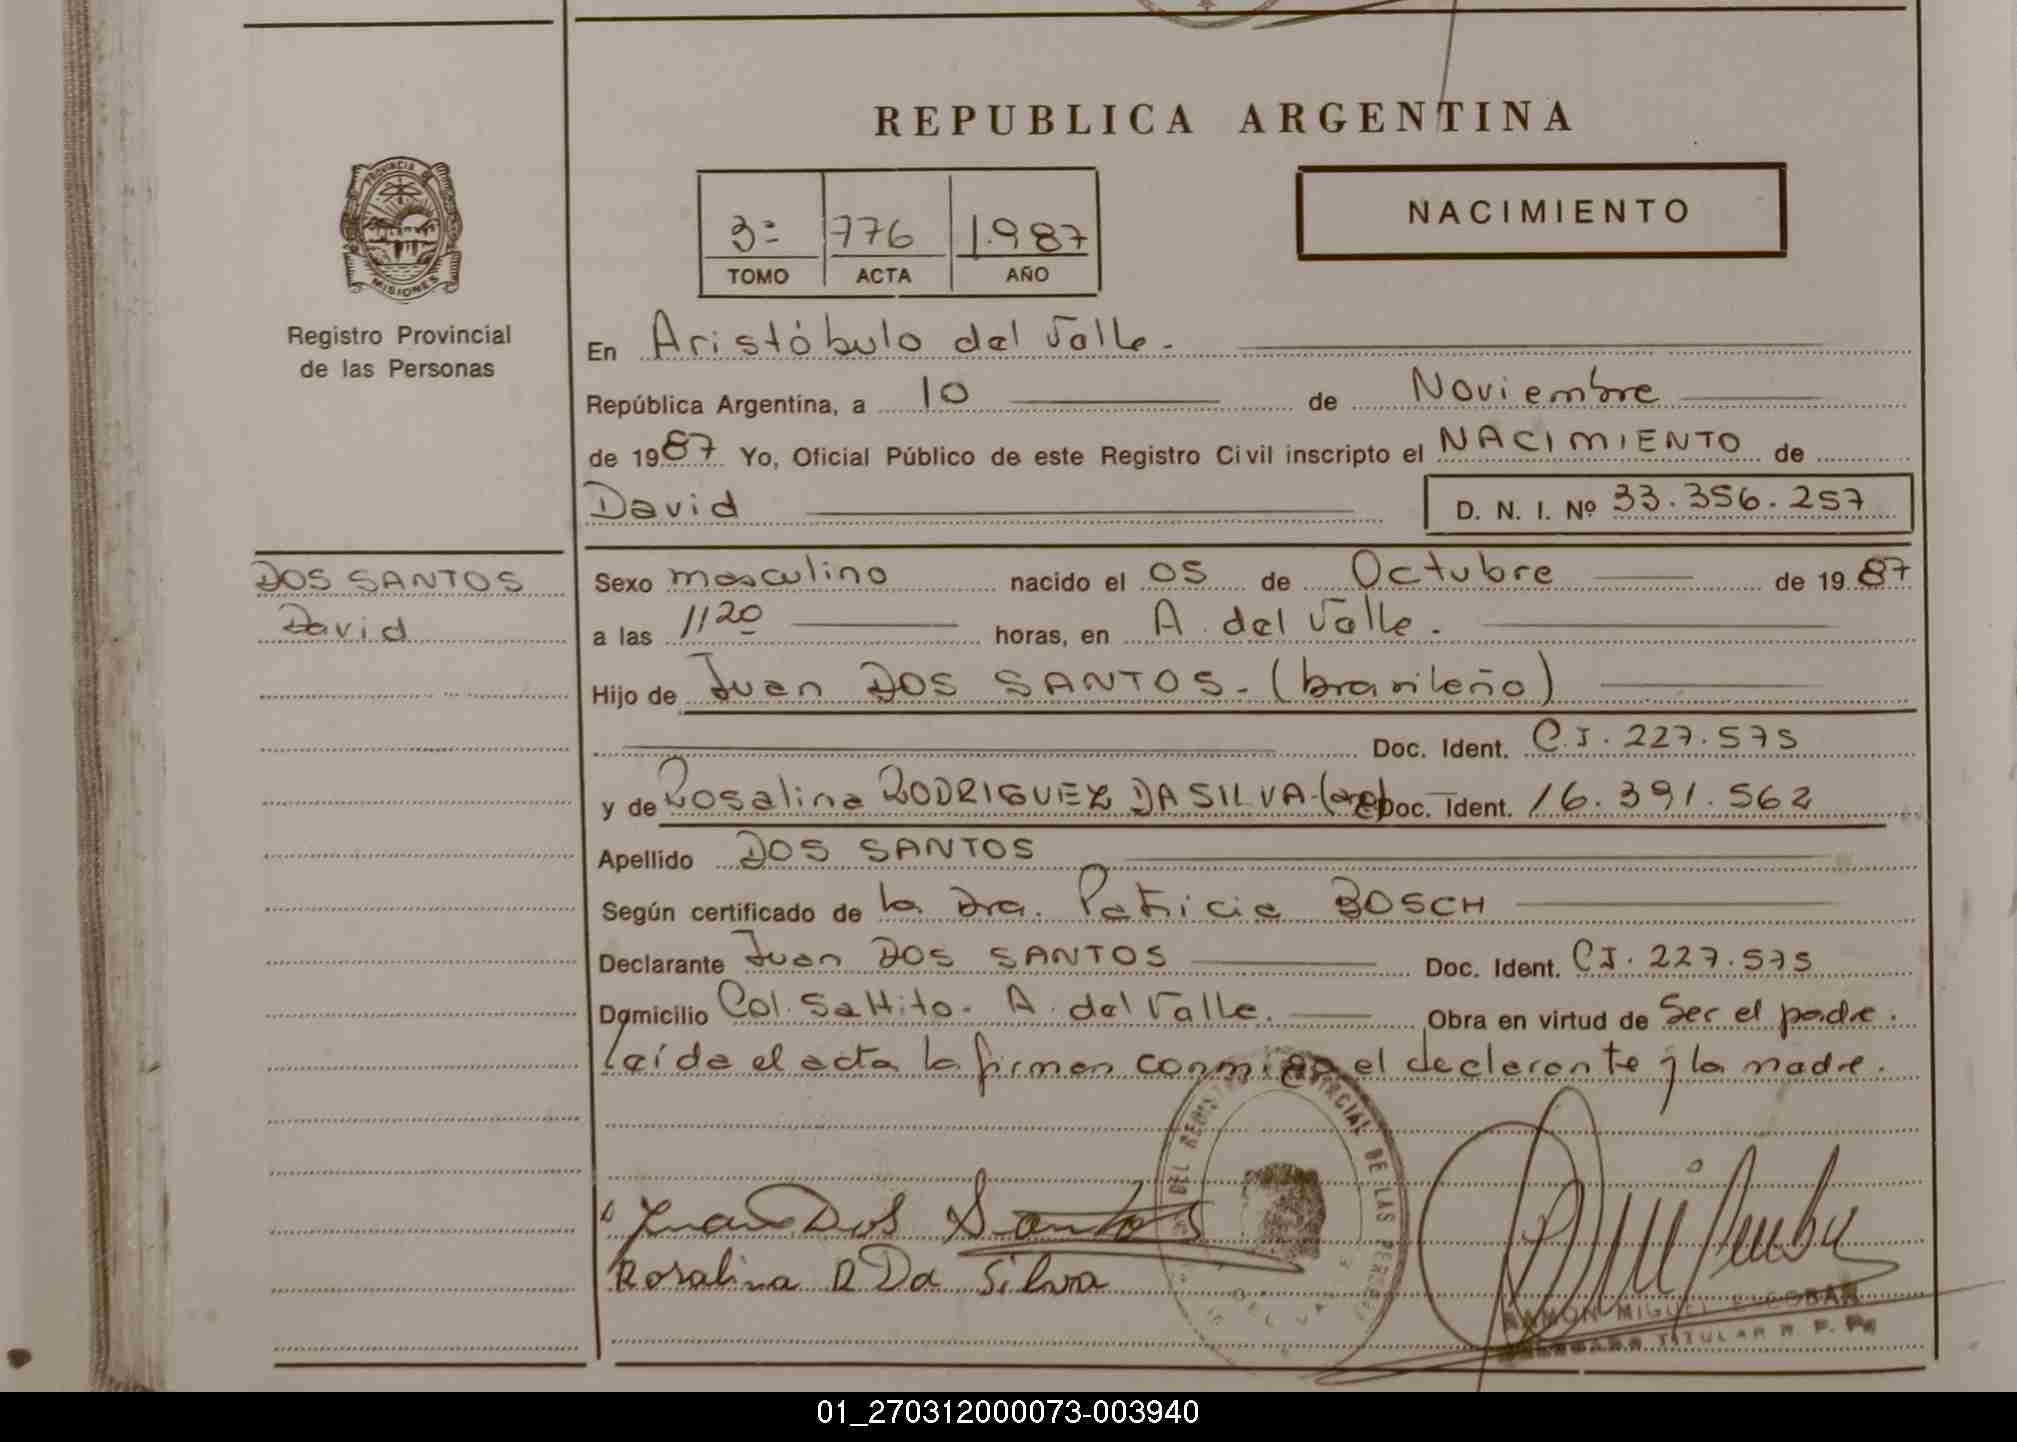 REPUBLICA ARGENTINA
NACIMIENTO
3= 776 1.987
TOMO ACTA AÑO
PROVINCIA DE
MISIONES
Registro Provincial
de las Personas
En Aristóbulo del Valle.
República Argentina, a 10 de Noviembre
de 1987 Yo, Oficial Público de este Registro Civil inscripto el NACIMIENTO de
David D. N. I. Nº 33.356.257
DOS SANTOS
David
Sexo masculino nacido el 05 de Octubre de 1987
a las 11 20 horas, en A. del Valle.
Hijo de Juan DOS SANTOS - (brasileño)
Doc. Ident. C.I. 227.575
y de Rosalina RODRIGUEZ DA SILVA-(arg) Doc. Ident. 16.391.562
Apellido DOS SANTOS
Según certificado de la Dra. Patricia BOSCH
Declarante Juan DOS SANTOS Doc. Ident. CI. 227.575
Domicilio Col. Saltito - A. del Valle. Obra en virtud de Ser el padre.
Leída el acta la firman conmigo el declarante y la madre.
Juan Dos Santos
Rosalina R Da Silva
DEL REGISTRO PROVINCIAL DE LAS PERSONAS
DEL VALLE
RAMON MIGUEL ESCOBAR
TITULAR R. P. P.
01_270312000073-003940